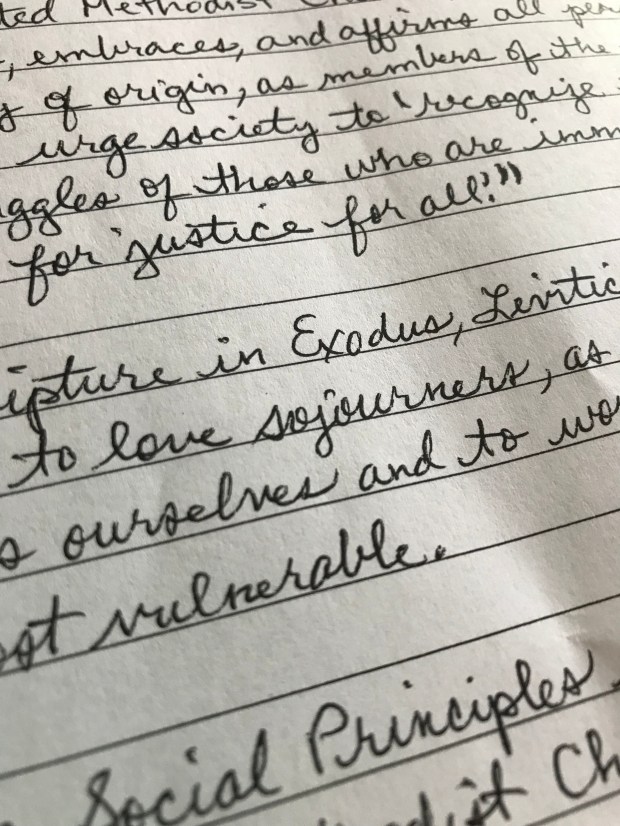 ted Methodist Ch
, embraces, and affirms all per
s of origin, as members of the
urge society to 'recognize
ggles of those who are imm
for justice for all.'"
ipture in Exodus, Levitic
to love sojourners, as
s ourselves and to wo
ost vulnerable.
Social Principles
dist Ch